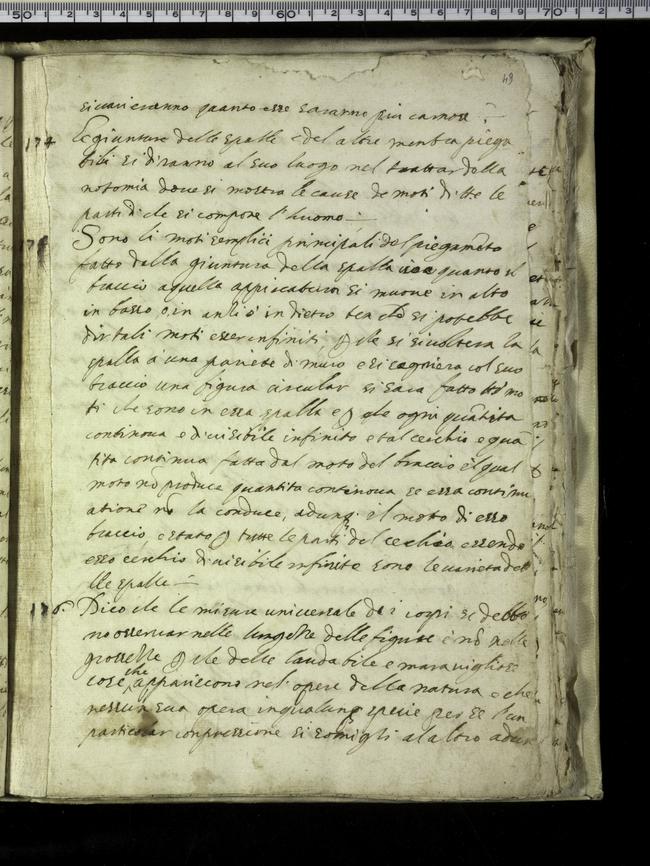 49
si varieranno quanto esse saranno piu carnose
174 Le giunture delle spalle e del altre membra piega
bili si diranno al suo luogo nel trattar della
notomia dove si mostra le cause de moti di tte le
parti di che si compone l'huomo
175 Sono li moti semplici principali del piegamēto
fatto dalla giuntura della spalla cioe quanto il
braccio aquella appicato si muove in alto
in basso o in anti o indietro benche si potrebbe
dir tali moti esser infiniti, p che se si voltera la
spalla a una pariete di muro e si segnera col suo
braccio una figura circular si sara fatto tti mo
ti che sono in essa spalla e p che ogni quātita
continova e divisibile infinito e tal cerchio e quā
tita continua fatta dal moto del braccio il qual
moto nō produce quantita continova se essa continu
atione nō la conduce, adunq. il moto di esso
braccio, e stato p tutte le parti del cerchio essendo
esso cerchio divisibile infinite sono le varieta del
lle spalle
176 Dico che le misure universale de i corpi si debbo
no osservar nelle lunghezze delle figure e nō nelle
grossezze p che delle laudabile e maravigliose
cose che appariscono nel opere della natura e che
nessun sua opera in qualunq specie per se l'un
particolar con precisione si somigli al altro adun